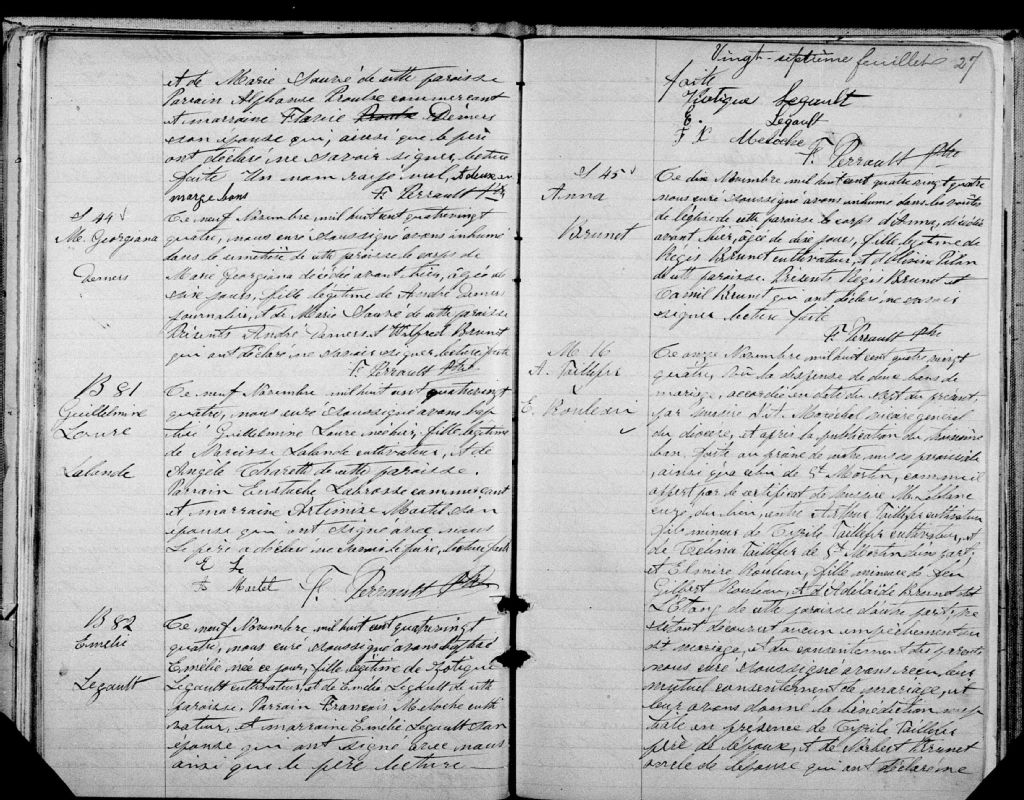 et de Marie Sauvé de cette paroisse
Parrain Alphonse Proulx commercant
et marraine Flavie Demers
son épouse qui, ainsi que le père
ont déclaré ne savoir signer, lecture
faite. Un nom rayé nul, 
marge bons F. Perrault Ptre
S 44
M. Georgiana
Demers
Ce neuf Novembre mil huit cent quatre vingt
quatre, nous curé soussigné avons inhumé
dans le cimetière de cette paroisse le corps de
Marie Georgiana décédée avant hier, agée de
jours, fille légitime de André Demers
journalier, et de Marie Sauvé de cette paroisse
Présents André Demers et Wilfred Brunet
qui ont déclaré ne savoir signer lecture faite
F. Perrault Ptre
B 81
Guillelmine
Laure
Lalande
Ce neuf Novembre mil huit cent quatre vingt
quatre, nous curé soussigné avons bap
tisé Guillelmine Laure née hier, fille légitime
de Narcisse Lalande cultivateur, et de
Angèle Charette de cette paroisse.
Parrain Eustache Labrosse commercant
et marraine Artimise Martel son
épouse qui ont signé avec nous
Le père a déclaré ne le faire, lecture faite
E L
A Martel F. Perrault Ptre
B 82
Emélie
Legault
Ce neuf Novembre mil huit cent quatre vingt
quatre, nous curé soussigné avons baptisé
Emélie née ce jour, fille légitime de
Legault cultivateur, et de Emélie Legault de cette
paroisse. Parrain Francois Meloche culti
vateur, et marraine Emélie Legault son
épouse qui ont signé avec nous
ainsi que le père lecture
Vingt-septième feuillet 27
faite
Legault
E. Legault
F X Meloche
F. Perrault Ptre
S 45
Anna
Brunet
Ce dix Novembre mil huit cent quatre vingt quatre
nous curé soussigné avons inhumé dans les voûtes
de l'église de cette paroisse le corps d'Anna, décédée
avant hier, agée de dix jours, fille légitime de
Régis Brunet cultivateur, et
de cette paroisse. Présents Régis Brunet et
Brunet qui ont déclaré ne savoir
signer lecture faite
F. Perrault Ptre
M. 16
A. Taillefer
E. Rouleau
Ce onze Novembre mil huit cent quatre vingt
quatre, vu la dispense de deux bans de
mariage, accordée en date du sept du présent,
par Maréchal vicaire général
du diocèse, et après la publication du troisième
ban, faite au prône de notre messe paroissiale
ainsi qu'à celui de St Martin, comme il
appert par le certificat de messire
curé du lieu, entre Arthur Taillefer cultivateur
fils mineur de Cyrile Taillefer cultivateur, et
de Celina Taillefer de St Martin d'une part,
et Elmire Rouleau, fille mineure de feu
Gilbert Rouleau, et d'Adélaide Brunet dit
L'Etang de cette paroisse d'autre part, ne
s'étant découvert aucun empêchement au
dit mariage, et du consentement des parents
nous curé soussigné avons recu leur
mutuel consentement de mariage, et
leur avons donné la bénédiction nup
tiale en présence de Cyrile Taillefer
père de l'époux, et de Norbert Brunet
oncle de l'épouse qui ont déclaré ne